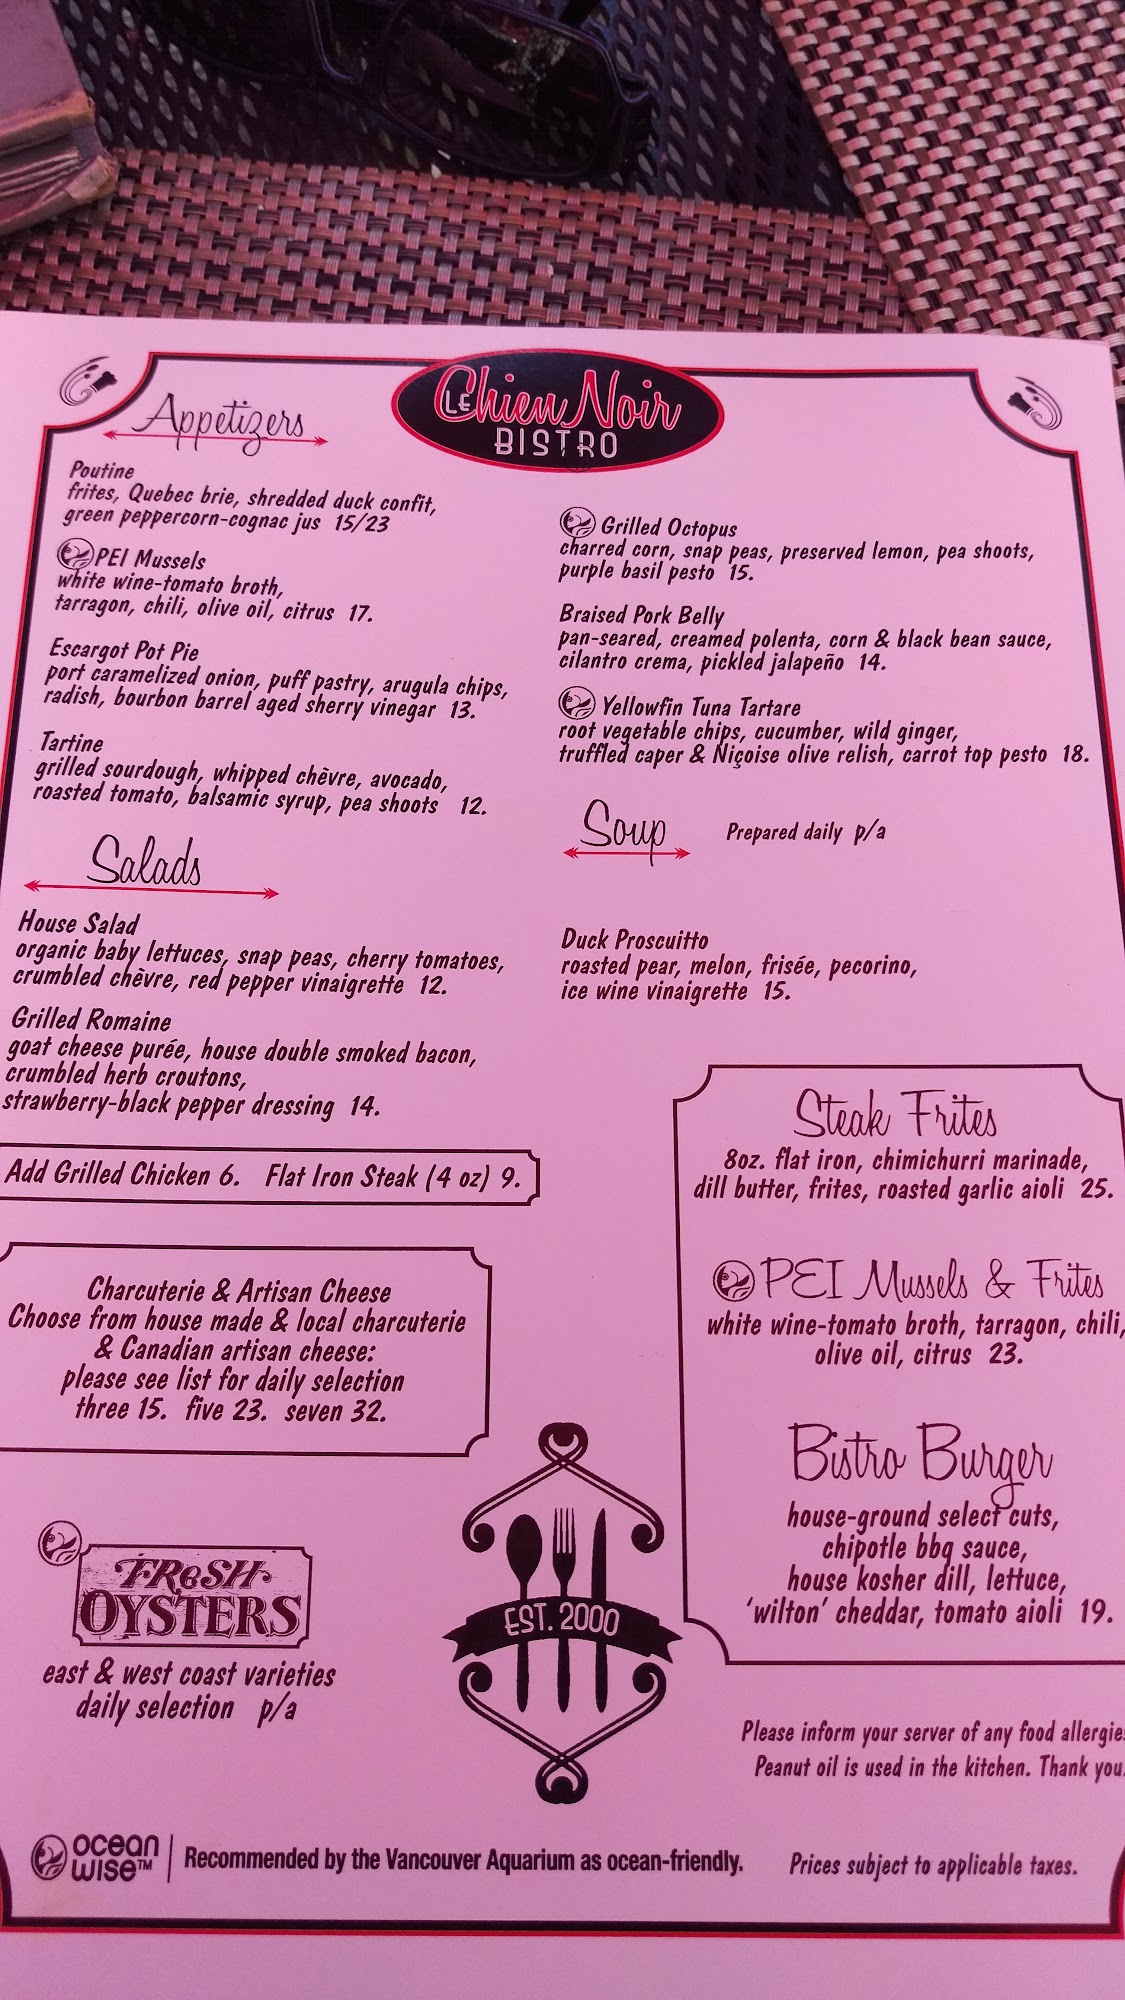 LE Chien Noir
BISTRO
Appetizers
Poutine
frites, Quebec brie, shredded duck confit,
green peppercorn-cognac jus 15/23
PEI Mussels
white wine-tomato broth,
tarragon, chili, olive oil, citrus 17.
Escargot Pot Pie
port caramelized onion, puff pastry, arugula chips,
radish, bourbon barrel aged sherry vinegar 13.
Tartine
grilled sourdough, whipped chèvre, avocado,
roasted tomato, balsamic syrup, pea shoots 12.
Grilled Octopus
charred corn, snap peas, preserved lemon, pea shoots,
purple basil pesto 15.
Braised Pork Belly
pan-seared, creamed polenta, corn & black bean sauce,
cilantro crema, pickled jalapeño 14.
Yellowfin Tuna Tartare
root vegetable chips, cucumber, wild ginger,
truffled caper & Niçoise olive relish, carrot top pesto 18.
Soup Prepared daily p/a
Salads
House Salad
organic baby lettuces, snap peas, cherry tomatoes,
crumbled chèvre, red pepper vinaigrette 12.
Grilled Romaine
goat cheese purée, house double smoked bacon,
crumbled herb croutons,
strawberry-black pepper dressing 14.
Duck Proscuitto
roasted pear, melon, frisée, pecorino,
ice wine vinaigrette 15.
Add Grilled Chicken 6. Flat Iron Steak (4 oz) 9.
Charcuterie & Artisan Cheese
Choose from house made & local charcuterie
& Canadian artisan cheese:
please see list for daily selection
three 15. five 23. seven 32.
Steak Frites
8oz. flat iron, chimichurri marinade,
dill butter, frites, roasted garlic aioli 25.
PEI Mussels & Frites
white wine-tomato broth, tarragon, chili,
olive oil, citrus 23.
Bistro Burger
house-ground select cuts,
chipotle bbq sauce,
house kosher dill, lettuce,
'wilton' cheddar, tomato aioli 19.
FReSH
OYSTERS
east & west coast varieties
daily selection p/a
EST. 2000
Please inform your server of any food allergie
Peanut oil is used in the kitchen. Thank you.
ocean
wise™
Recommended by the Vancouver Aquarium as ocean-friendly.
Prices subject to applicable taxes.